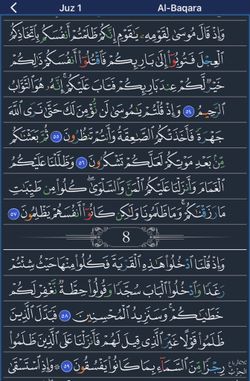 Juz 1 Al-Baqara
وَإِذْ قَالَ مُوسَىٰ لِقَوْمِهِۦ يَٰقَوْمِ إِنَّكُمْ ظَلَمْتُمْ أَنفُسَكُم بِٱتِّخَاذِكُمُ
ٱلْعِجْلَ فَتُوبُوٓا۟ إِلَىٰ بَارِئِكُمْ فَٱقْتُلُوٓا۟ أَنفُسَكُمْ ذَٰلِكُمْ
خَيْرٌ لَّكُمْ عِندَ بَارِئِكُمْ فَتَابَ عَلَيْكُمْ إِنَّهُۥ هُوَ ٱلتَّوَّابُ
ٱلرَّحِيمُ ٥٤ وَإِذْ قُلْتُمْ يَٰمُوسَىٰ لَن نُّؤْمِنَ لَكَ حَتَّىٰ نَرَى ٱللَّهَ
جَهْرَةً فَأَخَذَتْكُمُ ٱلصَّٰعِقَةُ وَأَنتُمْ تَنظُرُونَ ٥٥ ثُمَّ بَعَثْنَٰكُم
مِّنۢ بَعْدِ مَوْتِكُمْ لَعَلَّكُمْ تَشْكُرُونَ ٥٦ وَظَلَّلْنَا عَلَيْكُمُ
ٱلْغَمَامَ وَأَنزَلْنَا عَلَيْكُمُ ٱلْمَنَّ وَٱلسَّلْوَىٰ كُلُوا۟ مِن طَيِّبَٰتِ
مَا رَزَقْنَٰكُمْ وَمَا ظَلَمُونَا وَلَٰكِن كَانُوٓا۟ أَنفُسَهُمْ يَظْلِمُونَ ٥٧
8
وَإِذْ قُلْنَا ٱدْخُلُوا۟ هَٰذِهِ ٱلْقَرْيَةَ فَكُلُوا۟ مِنْهَا حَيْثُ شِئْتُمْ
رَغَدًا وَٱدْخُلُوا۟ ٱلْبَابَ سُجَّدًا وَقُولُوا۟ حِطَّةٌ نَّغْفِرْ لَكُمْ
خَطَٰيَٰكُمْ وَسَنَزِيدُ ٱلْمُحْسِنِينَ ٥٨ فَبَدَّلَ ٱلَّذِينَ
ظَلَمُوا۟ قَوْلًا غَيْرَ ٱلَّذِى قِيلَ لَهُمْ فَأَنزَلْنَا عَلَى ٱلَّذِينَ ظَلَمُوا۟
رِجْزًا مِّنَ ٱلسَّمَآءِ بِمَا كَانُوا۟ يَفْسُقُونَ ٥٩ وَإِذِ ٱسْتَسْقَىٰ